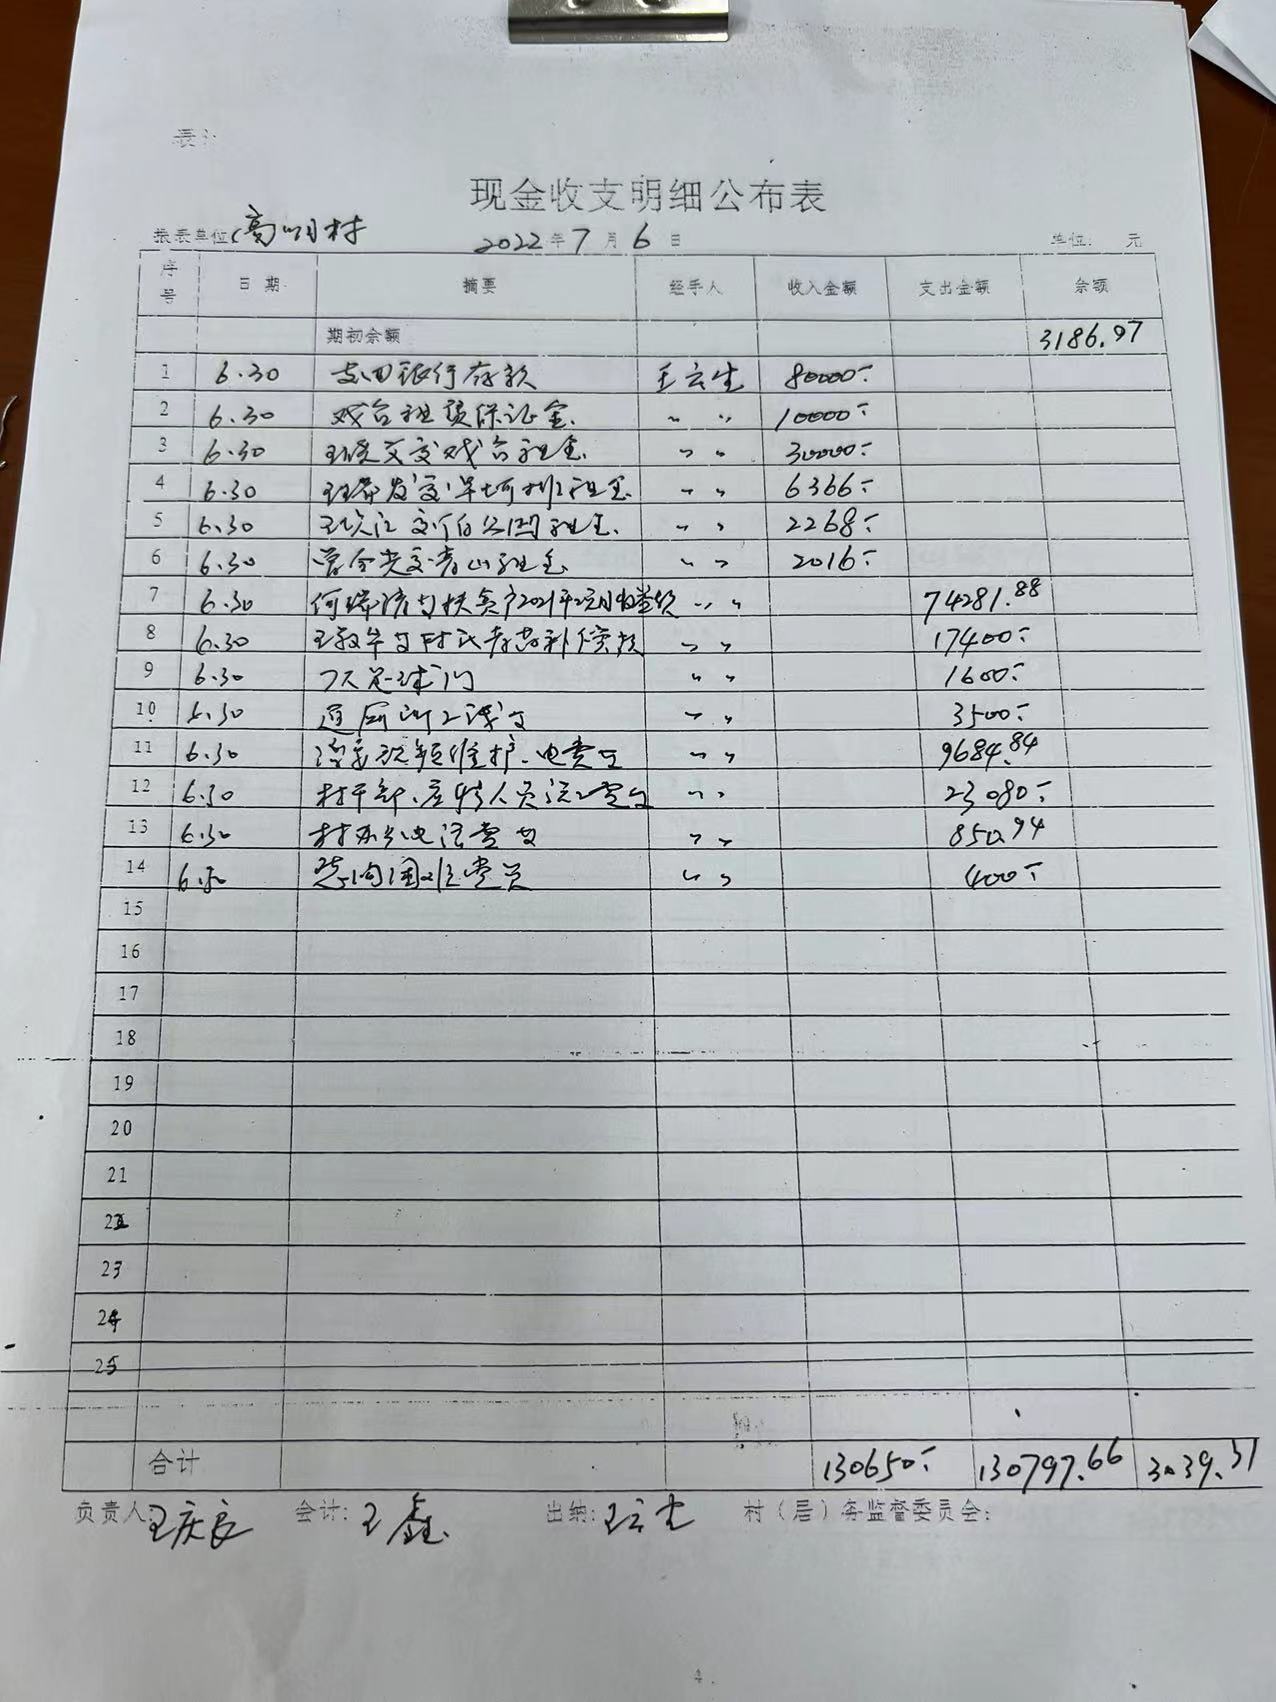 现金收支明细公布表
报表单位:高明村 2022年7月6日 单位: 元
序号 日期 摘要 经手人 收入金额 支出金额 余额
期初余额 3186.97
1 6.30 支回银行存款 王云生 80000.-
2 6.30 戏台租赁保证金 〃 〃 10000.-
3 6.30 交戏台租金 〃 〃 30000.-
4 6.30 租金 〃 〃 6366.-
5 6.30 公园租金 〃 〃 2268.-
6 6.30 曾令光交青山租金 〃 〃 2016.-
7 6.30 扶贫户2021年 〃 〃 74281.88
8 6.30 补偿款 〃 〃 17400.-
9 6.30 足球门 〃 〃 1600.-
10 6.30 〃 〃 3500.-
11 6.30 维护、电费支 〃 〃 9684.84
12 6.30 村干部、人员误工费支 〃 〃 23080.-
13 6.30 村办公电话费支 〃 〃 850.94
14 6.30 慰问困难党员 〃 〃 400.-
15
16
17
18
19
20
21
22
23
24
25
合计 130650.- 130797.66 3039.31
负责人:王庆良 会计:王鑫 出纳:王云生 村(居)务监督委员会:
4